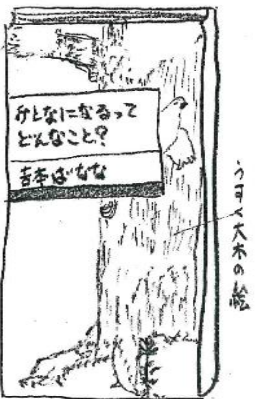 おとなになるって
どんなこと?
吉本ばなな
うすく大木の絵